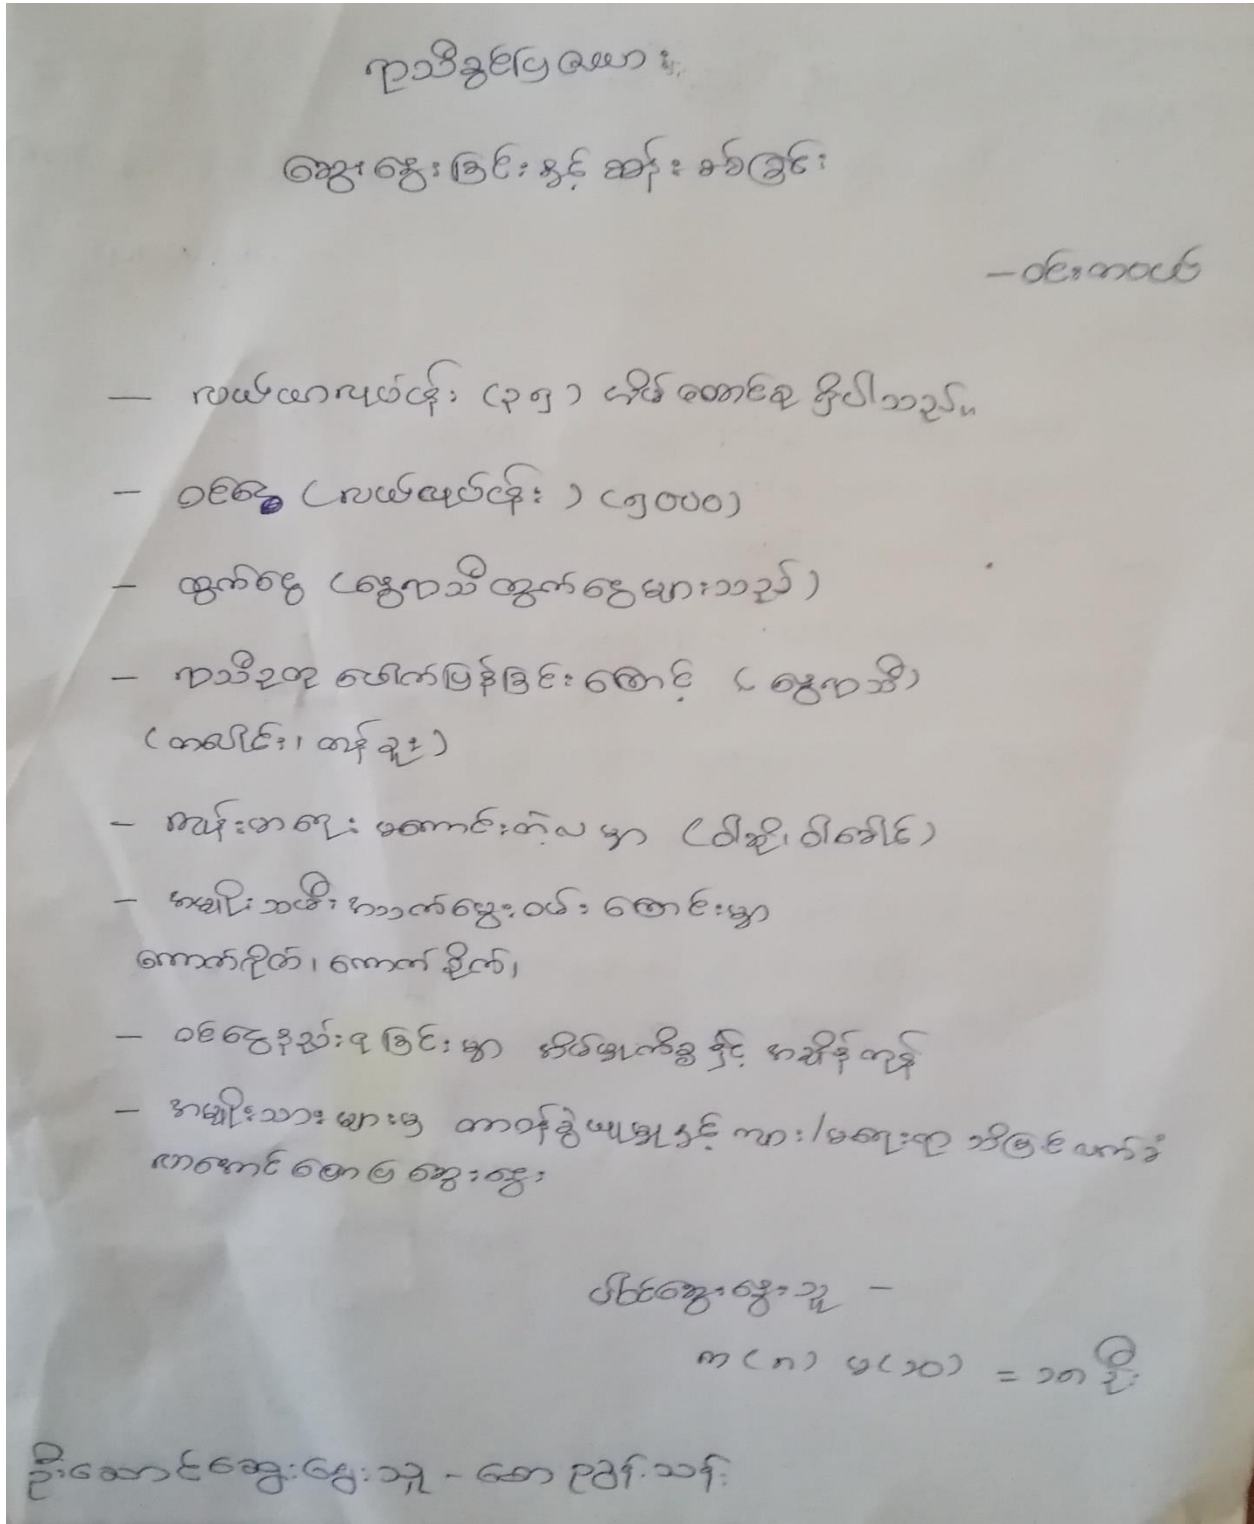 ရာသီခွင်ပြဇယား
ဆွေးနွေးခြင်းနှင့် ဆန်းစစ်ခြင်း
– ဝင်းကဝယ်
– လယ်ယာလုပ်ငန်း (၃၅) အိမ်ထောင်စု ရှိပါသည်။
– ဝင်ငွေ (လယ်လုပ်ငန်း) (၅၀၀၀)
– ထွက်ငွေ (နွေရာသီထွက်ငွေများသည်)
– ရာသီဥတု ဖောက်ပြန်ခြင်းကြောင့် (နွေရာသီ)
(တလိုင်း၊ တန်ခူး)
– ကျန်းမာရေး မကောင်းတဲ့လ မှာ (ဝါဆို၊ ဝါခေါင်)
– အမျိုးသမီး အသက်မွေးဝမ်းကြောင်းမှာ
ကောက်စိုက်၊ ကောက်ရိတ်၊
– ဝင်ငွေနည်းရခြင်းမှာ အိမ်မှုကိစ္စနှင့် အချိန်ကုန်
– အမျိုးသားများမှ တာဝန်ခွဲယူမှုနှင့် ကျား/မရေးရာ သိမြင်လက်ခံ
လာအောင် ပြောပြဆွေးနွေး
ပါဝင်ဆွေးနွေးသူ –
က (၈) မ (၁၀) = ၁၈ ဦး
ဦးဆောင်ဆွေးနွေးသူ – စော ဥခွန်းသန်း